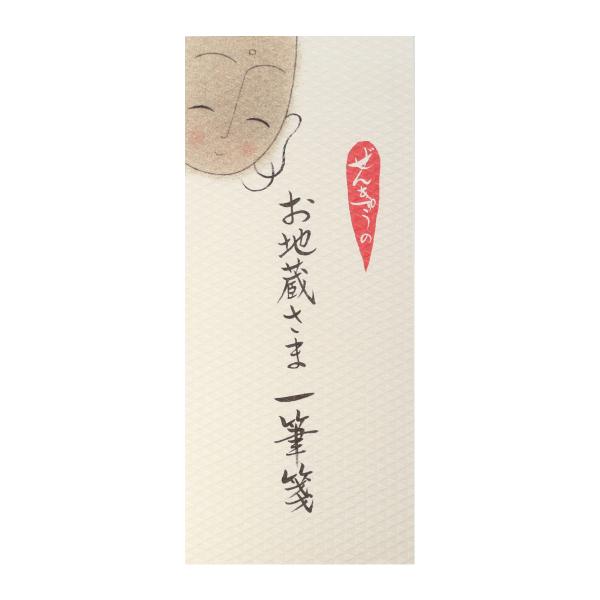 ぜんきゅうの
お地蔵さま 一筆箋